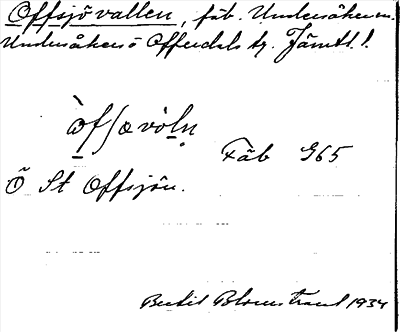 Offsjövallen, fäb. Undersåkers sn.
Undersåkers o Offerdals tg. Jämtl. l.
Fäb 965
Ö St Offsjön.
Bertil Blomstrand 1934